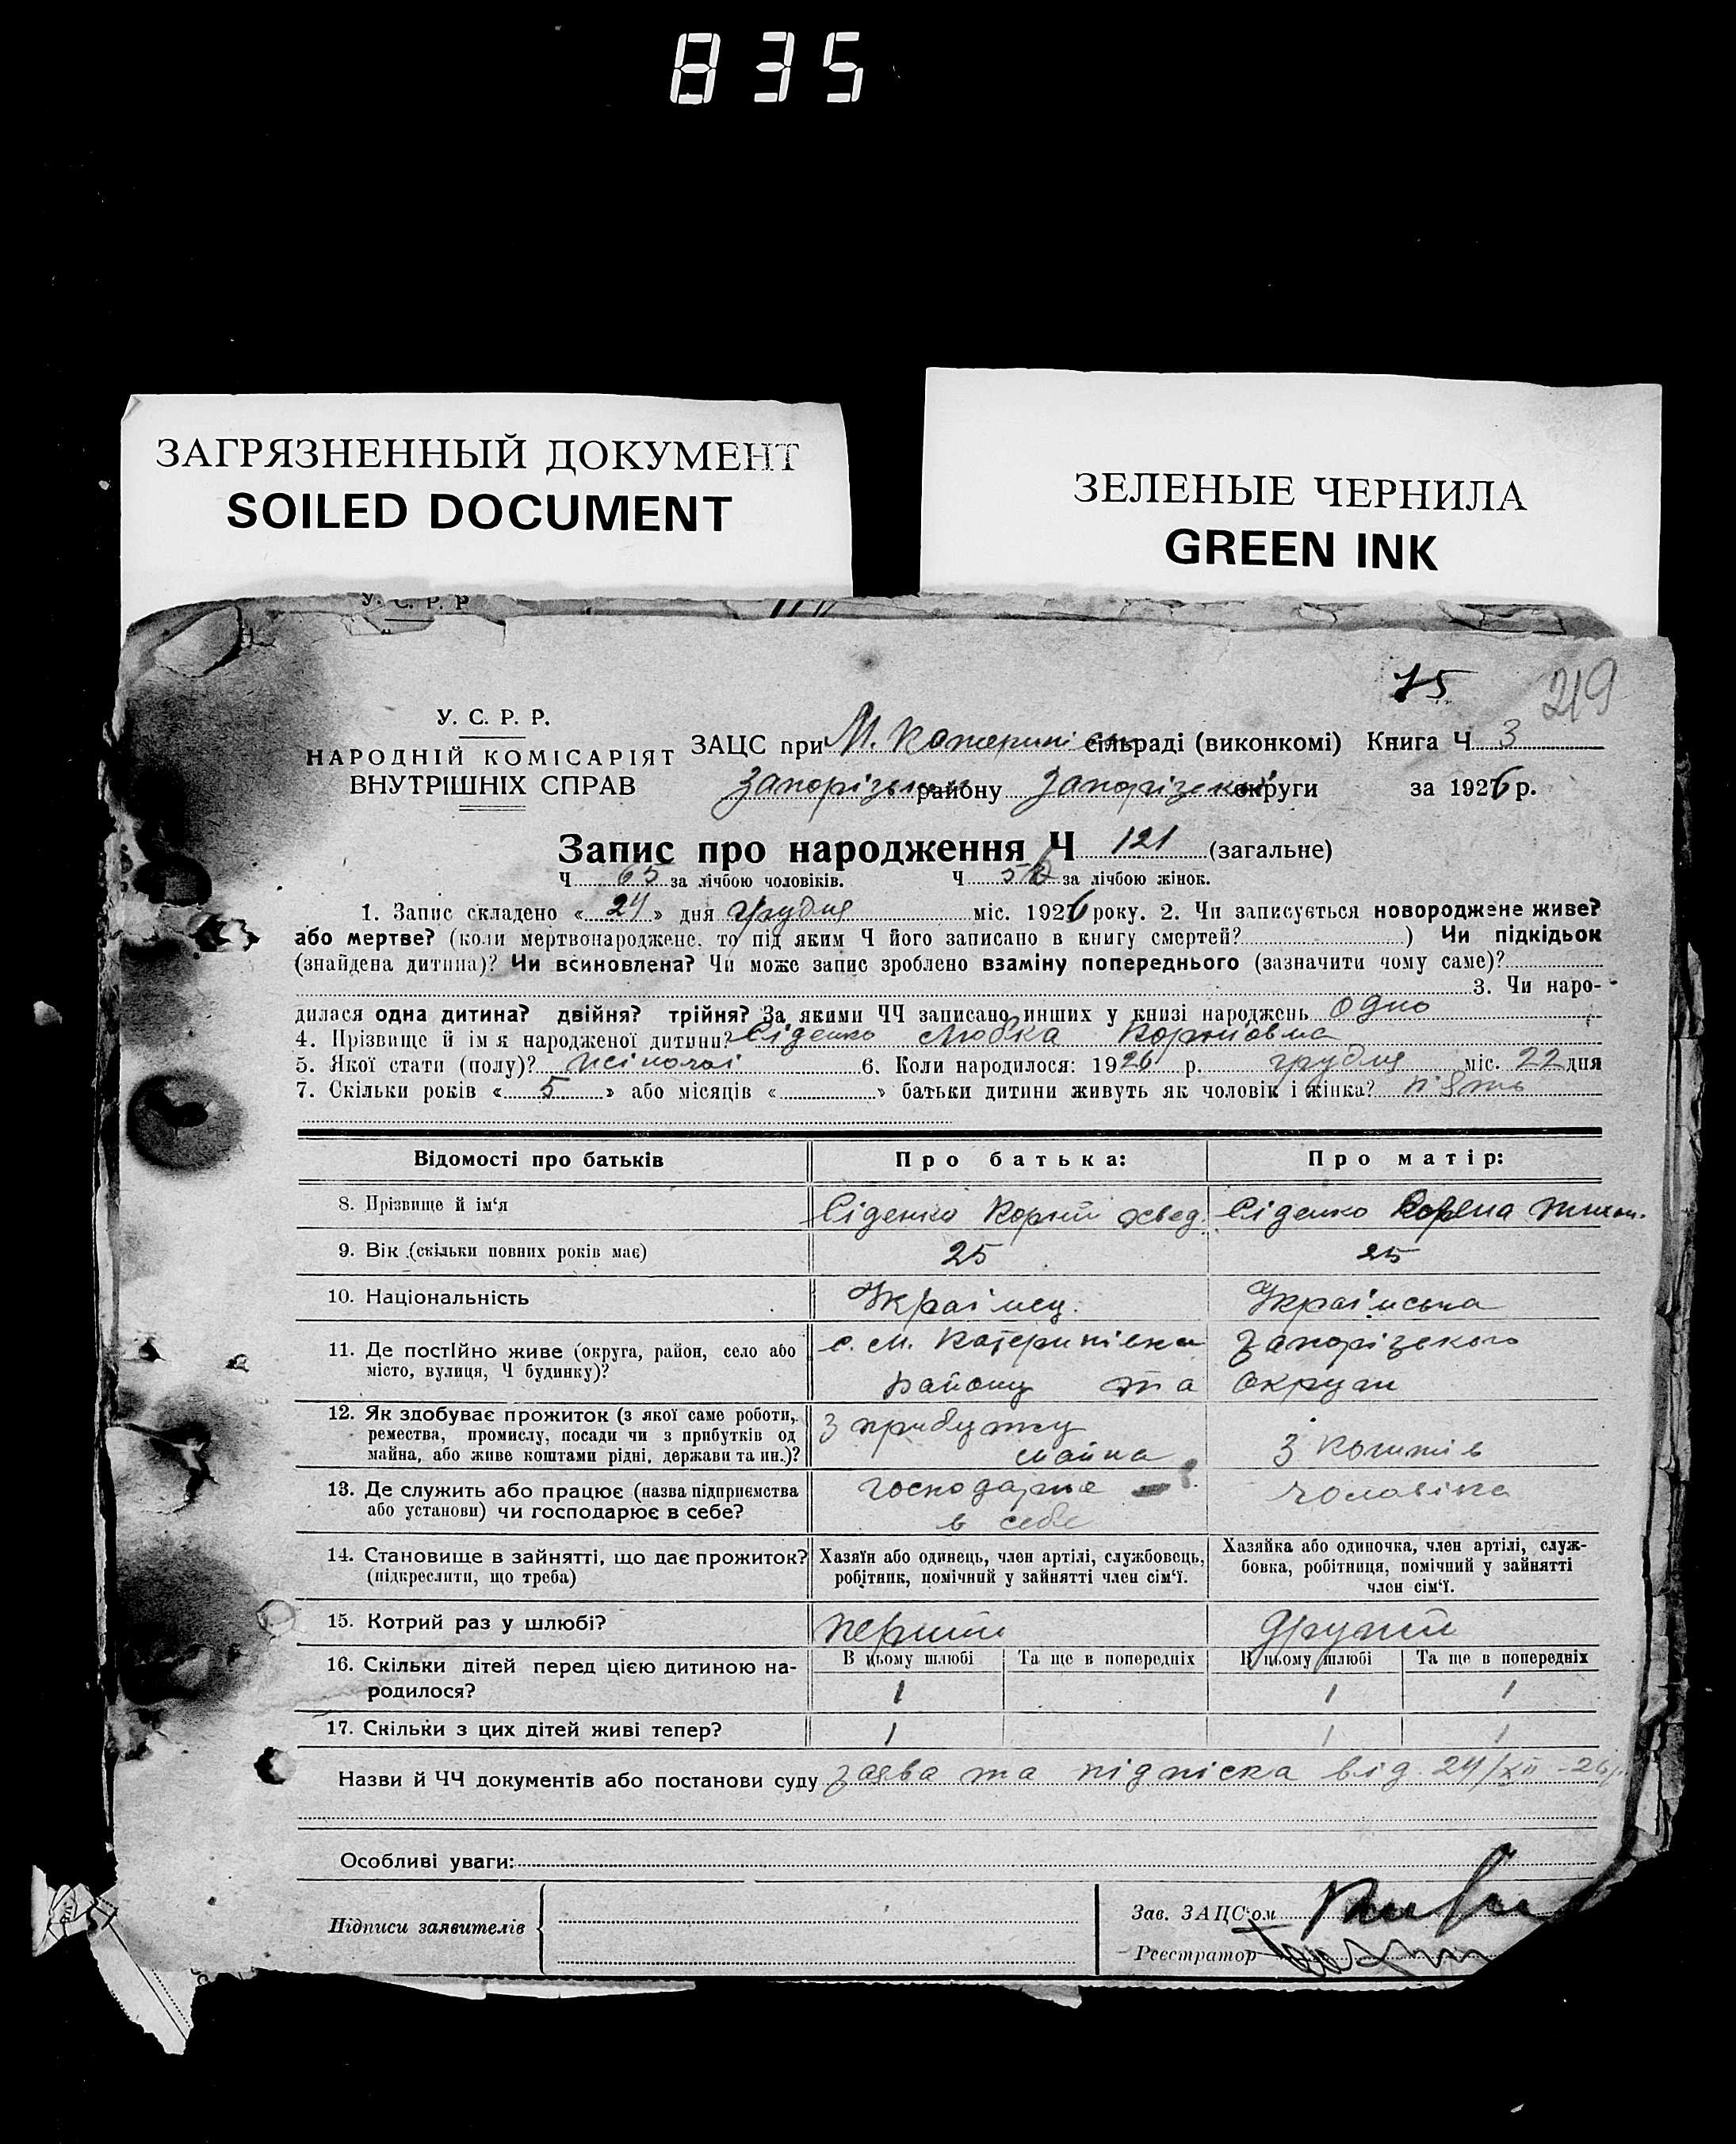 835
ЗАГРЯЗНЕННЫЙ ДОКУМЕНТ
SOILED DOCUMENT
ЗЕЛЕНЫЕ ЧЕРНИЛА
GREEN INK
У. С. Р. Р
75
219
У. С. Р. Р.
НАРОДНІЙ КОМІСАРІЯТ
ВНУТРІШНІХ СПРАВ
ЗАЦС при М. Катерині сільраді (виконкомі) Книга Ч 3
Запорізьк району Запорізької округи за 1926 р.
Запис про народження Ч 121 (загальне)
Ч 65 за лічбою чоловіків. Ч за лічбою жінок.
1. Запис складено « 24 » дня грудня міс. 1926 року. 2. Чи записується новороджене живе?
або мертве? (коли мертвонароджене, то під яким Ч його записано в книгу смертей? ) Чи підкідьок
(знайдена дитина)? Чи всиновлена? Чи може запис зроблено взаміну попереднього (зазначити чому саме)?
3. Чи наро-
дилася одна дитина? двійня? трійня? За якими ЧЧ записано инших у книзі народжень одно
4. Прізвище й ім'я народженої дитини? Сіденко Любка Корніовна
5. Якої стати (полу)? жіночої 6. Коли народилося: 1926 р. грудня міс. 22 дня
7. Скільки років « 5 » або місяців « » батьки дитини живуть як чоловік і жінка? п'ять
Відомості про батьків Про батька: Про матір:
8. Прізвище й ім'я Сіденко Корній Сіденко
9. Вік (скільки повних років має) 25 25
10. Національність Украінец. Украінська
11. Де постійно живе (округа, район, село або місто, вулиця, Ч будинку)? с. М. Катеринівка Запорізького
району та округи
12. Як здобуває прожиток (з якої саме роботи, ремества, промислу, посади чи з прибутків од майна, або живе коштами рідні, держави та ин.)? з прибутку майна з коштів
13. Де служить або працює (назва підприємства або установи) чи господарює в себе? господарює в себе чоловіка
14. Становище в зайнятті, що дає прожиток? (підкреслити, що треба) Хазяїн або одинець, член артілі, службовець, робітник, помічний у зайнятті член сім'ї. Хазяйка або одиночка, член артілі, служ-бовка, робітниця, помічний у зайнятті член сім'ї.
15. Котрий раз у шлюбі? перший другий
16. Скільки дітей перед цією дитиною на-родилося? В цьому шлюбі Та ще в попередніх В цьому шлюбі Та ще в попередніх
1 1 1
17. Скільки з цих дітей живі тепер? 1 1 1
Назви й ЧЧ документів або постанови суду заява та підпіска від 24/XII-26р.
Особливі уваги:
Підписи заявителів
Зав. ЗАЦС'ом
Реєстратор